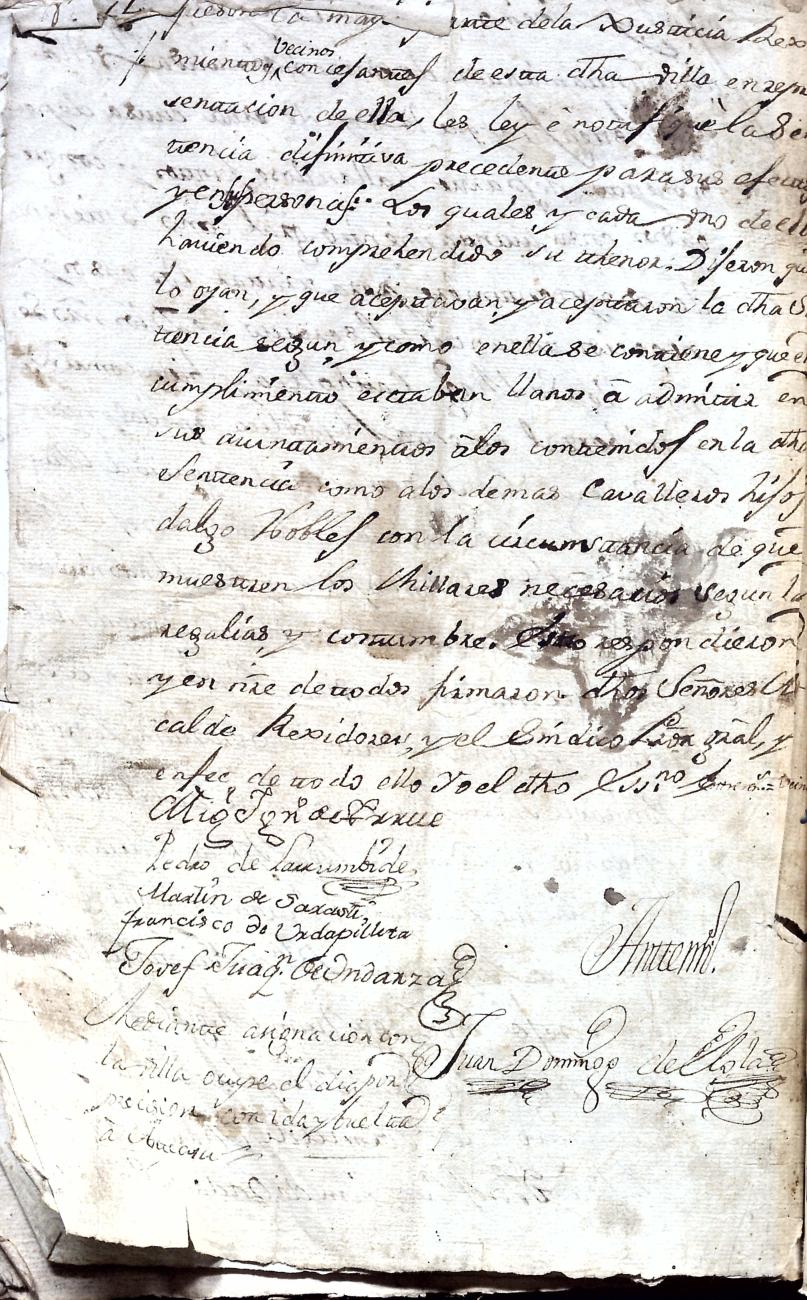 fueron la mayor parte dela Justicia Rex
miento, y vecinos concesantes de esta dha villa en repre
sentacion de ella, les ley è notifiquè la Sen
tencia difinitiva precedente para sus efectos
y en sus personas: Los quales y cada vno de ellos
haviendo comprehendido su thenor: Dijeron que
lo oyan, y que aceptavan, y aceptaron la dha Sen
tencia segun, y como enella se contiene y que en
cumplimiento estaban llanos à admitir en
sus aiuntamientos à los contenidos en la dha
Sentencia como alos demas Cavalleros hijos
dalgo Nobles con la circumstancia de que
muestren los Millares necesarios segun la
regalias, y costumbre. Esto respondieron
y en nre de todos firmaron dhos Señores Al
calde Rexidores, y el Sindico Pror gral, y
enfee de todo ello Yo el dho Essno
Mig Ign de Yrrue
Pedro de Lacumbide
Martin de Sarasti
francisco de Urdapilleta
Josef Juaqn de Undanza
Antemi.
Juan Domingo de
Mediante asignacion con
la villa ocupe el dia por
precision con ida y buelta
à